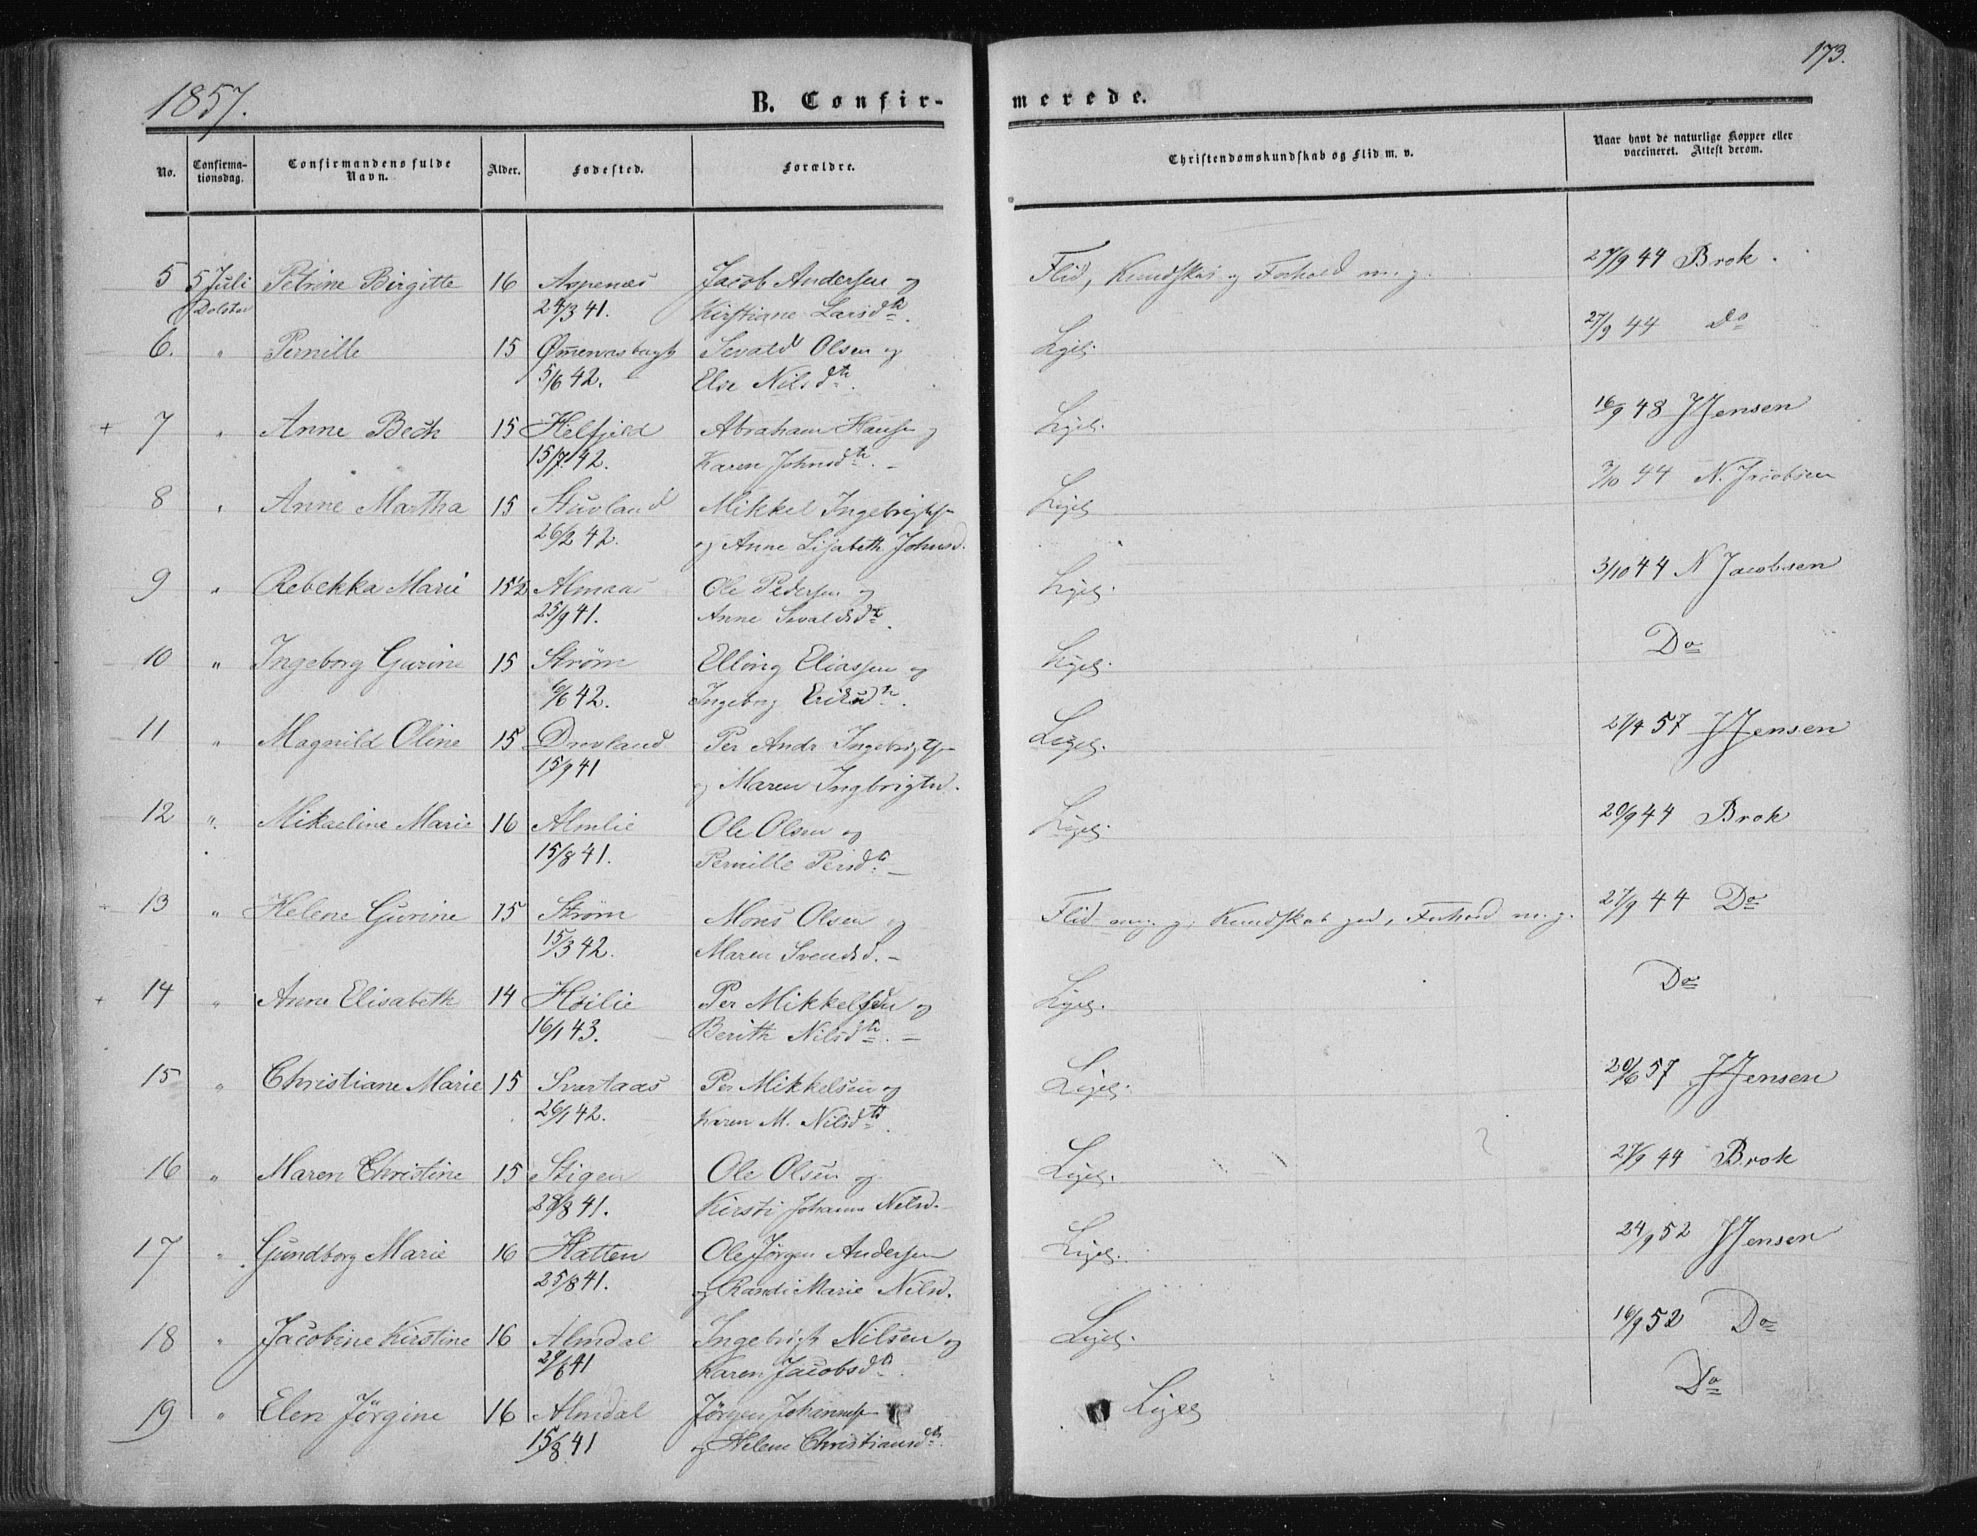 173.
1857.
B. Confirmerede.
No.
Confirmationsdag.
Confirmandens fulde Navn.
Alder.
Fødested.
Forældre.
Christendomskundskab og Flid m. v.
Naar havt de naturlige Kopper eller vaccineret. Attest derom.
5 5 Juli Petrine Birgitte 16 Aspenæs Jacob Andersen og Flid, Kundskab og Forhold m. g. 27/9 44 Brok.
Dolstad 24/3 41. Kirstiane Larsdtr.
6. " Pernille 15 Sevald Olsen og Ligel. 27/9 44 Do
5/6 42. Else Nilsdtr.
+ 7 " Anne Bech 15 Helfjeld Abraham Hansen og Ligel. 16/9 48 JJensen
15/7 42. Karen Johnsdtr. –
8 " Anne Martha 15 Stuvland Mikkel Ingebrigts. Ligel. 3/10 44 N. Jacobsen
26/2 42. og Anne Lisabeth Johnsd.
9 " Rebekka Marie 15½ Almaa Ole Pedersen og Ligel. 3/10 44 N Jacobsen
25/9 41. Anne Sevaldsdtr.
10 " Ingeborg Gurine 15 Strøm Elling Eliassen og Ligel. Do
/6 42. Ingeborg Eriksdtr.
11 " Magnild Oline 15 Drevland Per Andr Ingebrigts. Ligel. 27/4 57 JJensen
15/9 41 og Maren Ingbrigtsd.
12 ". Mikaeline Marie 16 Almlie Ole Olsen og Ligel. 20/9 44 Brok
15/8 41. Pernille Persdtr. –
13 " Helene Gurine 15 Strøm Mons Olsen og Flid meg. g, Kundskab god, Forhold m. g. 27/9 44 Do
15/3 42. Maren Svendsd. –
+ 14 " Anne Elisabeth 14 Høilie Per Mikkelsen og Ligel. Do
16/1 43. Berith Nilsdtr. –
15 " Christiane Marie 15 Svartaas Per Mikkelsen og Ligel. 20/6 57 JJensen
26/1 42. Karen M. Nilsdtr.
16 " Maren Christine 15 Stigen Ole Olsen og Ligel. 27/9 44 Brok
28/8 41. Kirsti Johanna Nilsd.
17 " Gundborg Marie 16 Hatten Ole Jørgen Andersen Ligel. 24/9 52 JJensen
25/8 41. og Randi Marie Nilsd.
18 " Jacobine Kirstine 16 Almdal Ingebrigt Nilsen og Ligel. 16/9 52 Do
29/6 41 Karen Jacobsdtr.
19 " Elen Jørgine 16 Almdal Jørgen Johannes. Ligel. Do
15/8 41 og Helene Christiansdtr.